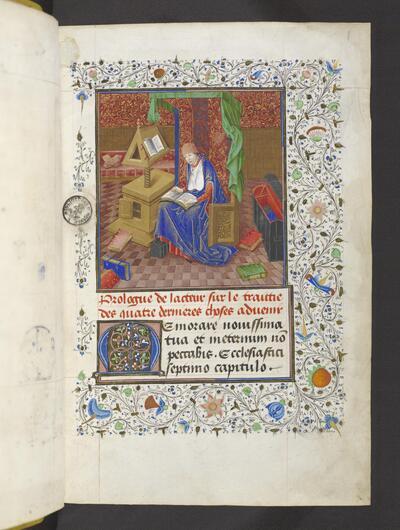 Prologue de lacteur sur le traittie
des quatre dernieres choses aduenir
Memorare nouissima
tua et ineternum nõ
peccabis. Ecclesiastici
septimo capitulo.